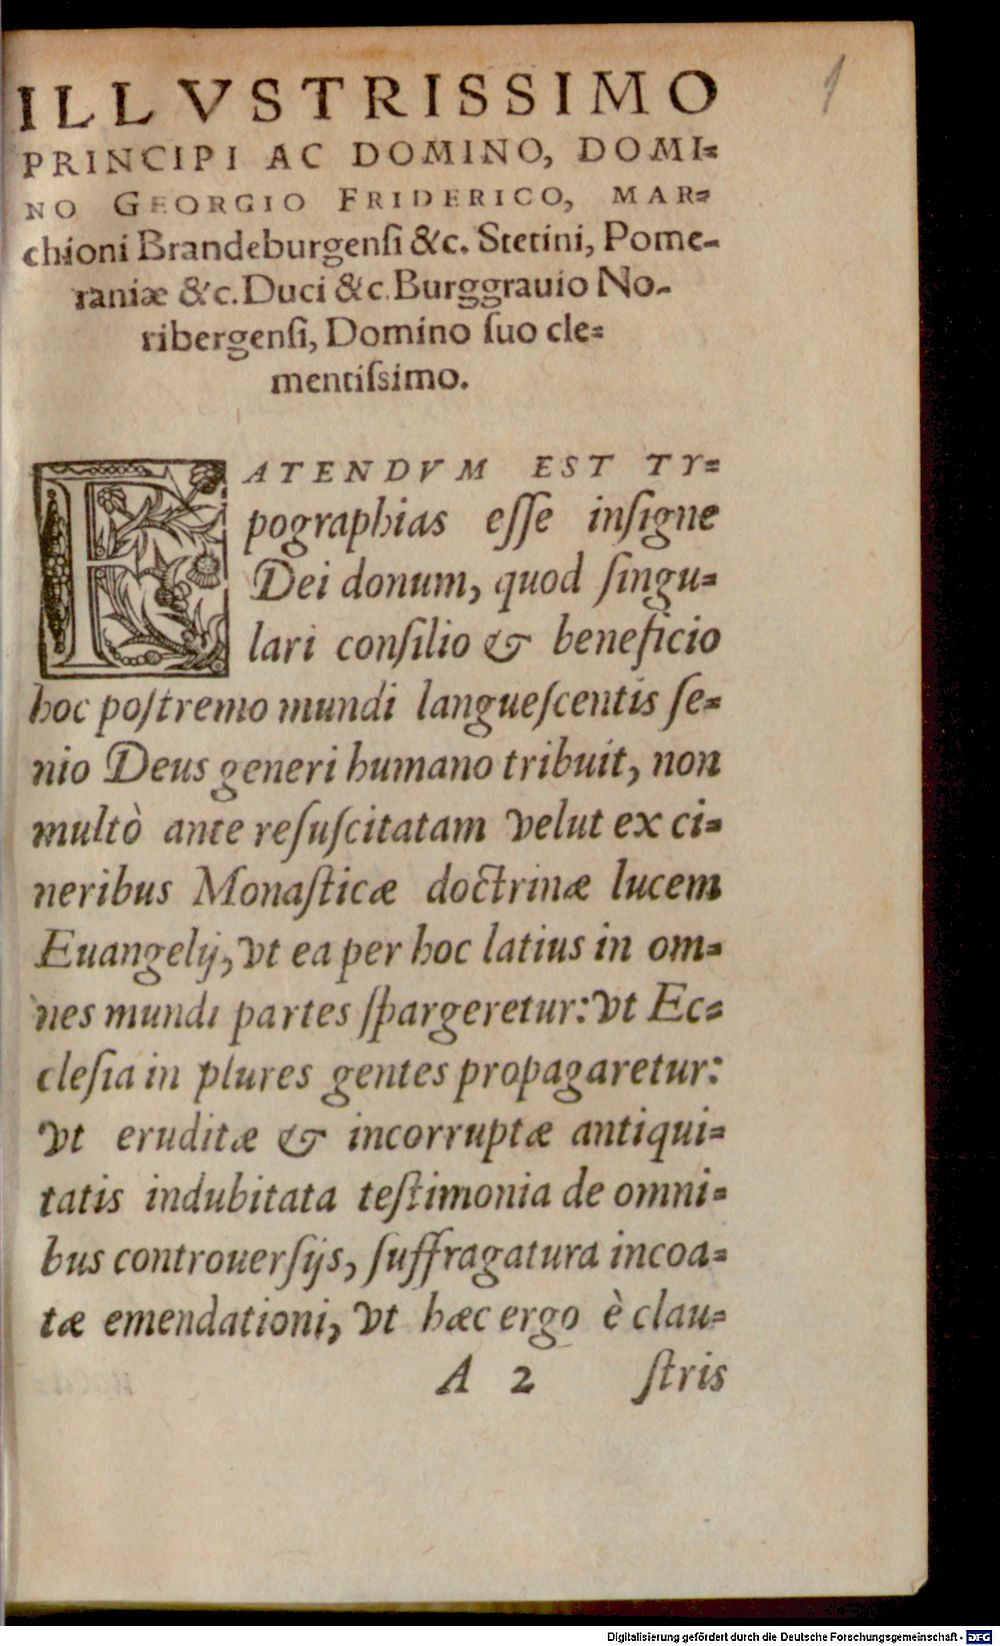 1
ILLVSTRISSIMO
PRINCIPI AC DOMINO, DOMI=
NO GEORGIO FRIDERICO, MAR=
chioni Brandeburgenſi &c. Stetini, Pome-
raniæ &c. Duci &c. Burggrauio No-
ribergenſi, Domino ſuo cle=
mentiſsimo.
FATENDVM EST TY=
pographias eſſe inſigne
Dei donum, quod ſingu=
lari conſilio & beneficio
hoc poſtremo mundi langueſcentis ſe=
nio Deus generi humano tribuit, non
multò ante reſuſcitatam velut ex ci=
neribus Monaſticæ doctrinæ lucem
Euangelij, vt ea per hoc latius in om=
nes mundi partes ſpargeretur: vt Ec=
cleſia in plures gentes propagaretur:
vt eruditæ & incorruptæ antiqui=
tatis indubitata teſtimonia de omni=
bus controuerſijs, ſuffragatura incoa=
tæ emendationi, vt hæc ergo è clau=
A 2 ſtris
Digitalisierung gefördert durch die Deutsche Forschungsgemeinschaft - DFG